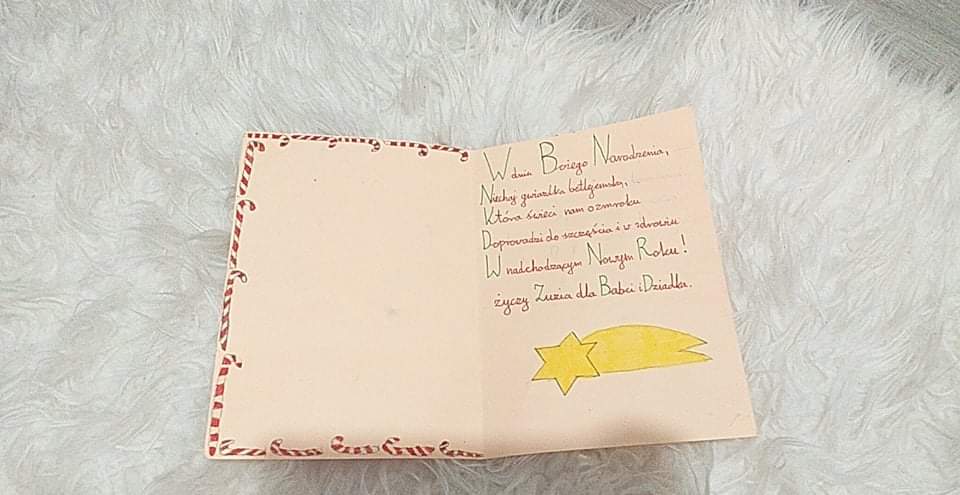 W dniu Bożego Narodzenia,
Niechaj gwiazdka betlejemska,
Która świeci nam o zmroku
Doprowadzi do szczęścia i w zdrowiu
W nadchodzącym Nowym Roku!
życzy Zuzia dla Babci i Dziadka.